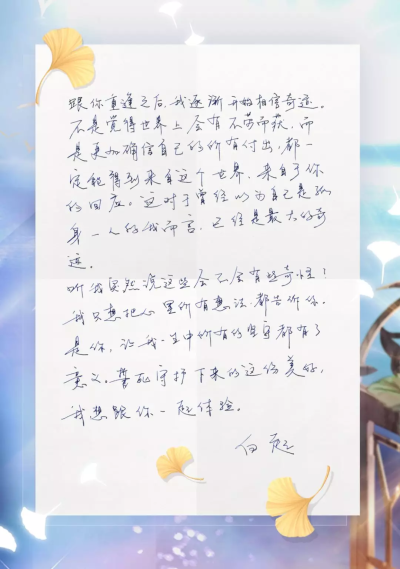 跟你重逢之后,我逐渐开始相信奇迹。
不是觉得世界上会有不劳而获,而
是更加确信自己的所有付出,都一
定能得到来自这个世界,来自于你
的回应。这对于曾经以为自己是孤
身一人的我而言,已经是最大的奇
迹。
听我突然说这些会不会有些奇怪?
我只想把心里所有想法,都告诉你。
是你,让我一生中所有的坚守都有了
意义。誓死守护下来的这份美好,
我想跟你一起体验。
白起